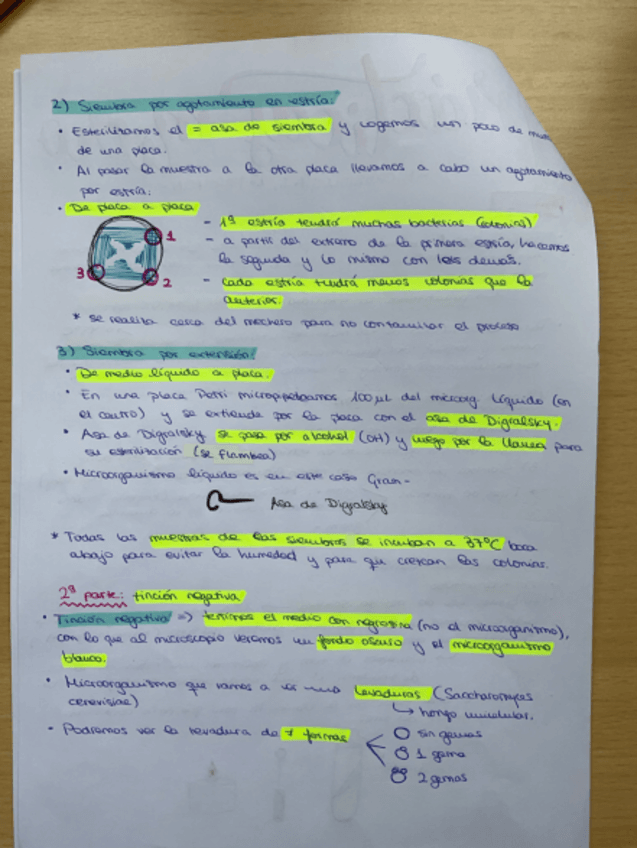 2) Siembra por agotamiento en estría:
• Esterilizamos el = asa de siembra y cogemos un poco de
de una placa.
• Al pasar la muestra a la otra placa llevamos a cabo un agotamiento
por estría.
• De placa a placa
1
2
3
- 1ª estría tendrá muchas bacterias (colonias)
- a partir del extremo de la primera estría, hacemos
la segunda y lo mismo con las demás.
- cada estría tendrá menos colonias que la
anterior.
* se realiza cerca del mechero para no contaminar el proceso
3) Siembra por extensión:
• De medio líquido a placa.
• En una placa Petri micropipeteamos 100 µl del microorg. líquido (en
el centro) y se extiende por la placa con el asa de Digralsky.
• Asa de Digralsky se pasa por alcohol (OH) y luego por la llama para
su esterilización (se flambea)
• Microorganismo líquido es en este caso Gram -
Asa de Digralsky
* Todas las muestras de las siembras se incuban a 37ºC boca
abajo para evitar la humedad y para que crezcan las colonias.
2ª parte: tinción negativa
• Tinción negativa => teñimos el medio con negrosina (no el microorganismo),
con lo que al microscopio veremos un fondo oscuro y el microorganismo
blanco.
• Microorganismo que vamos a ver levaduras (Saccharomyces
cerevisiae)
↳ hongo unicelular.
• Podremos ver la levadura de ≠ formas
sin gemas
1 gema
2 gemas